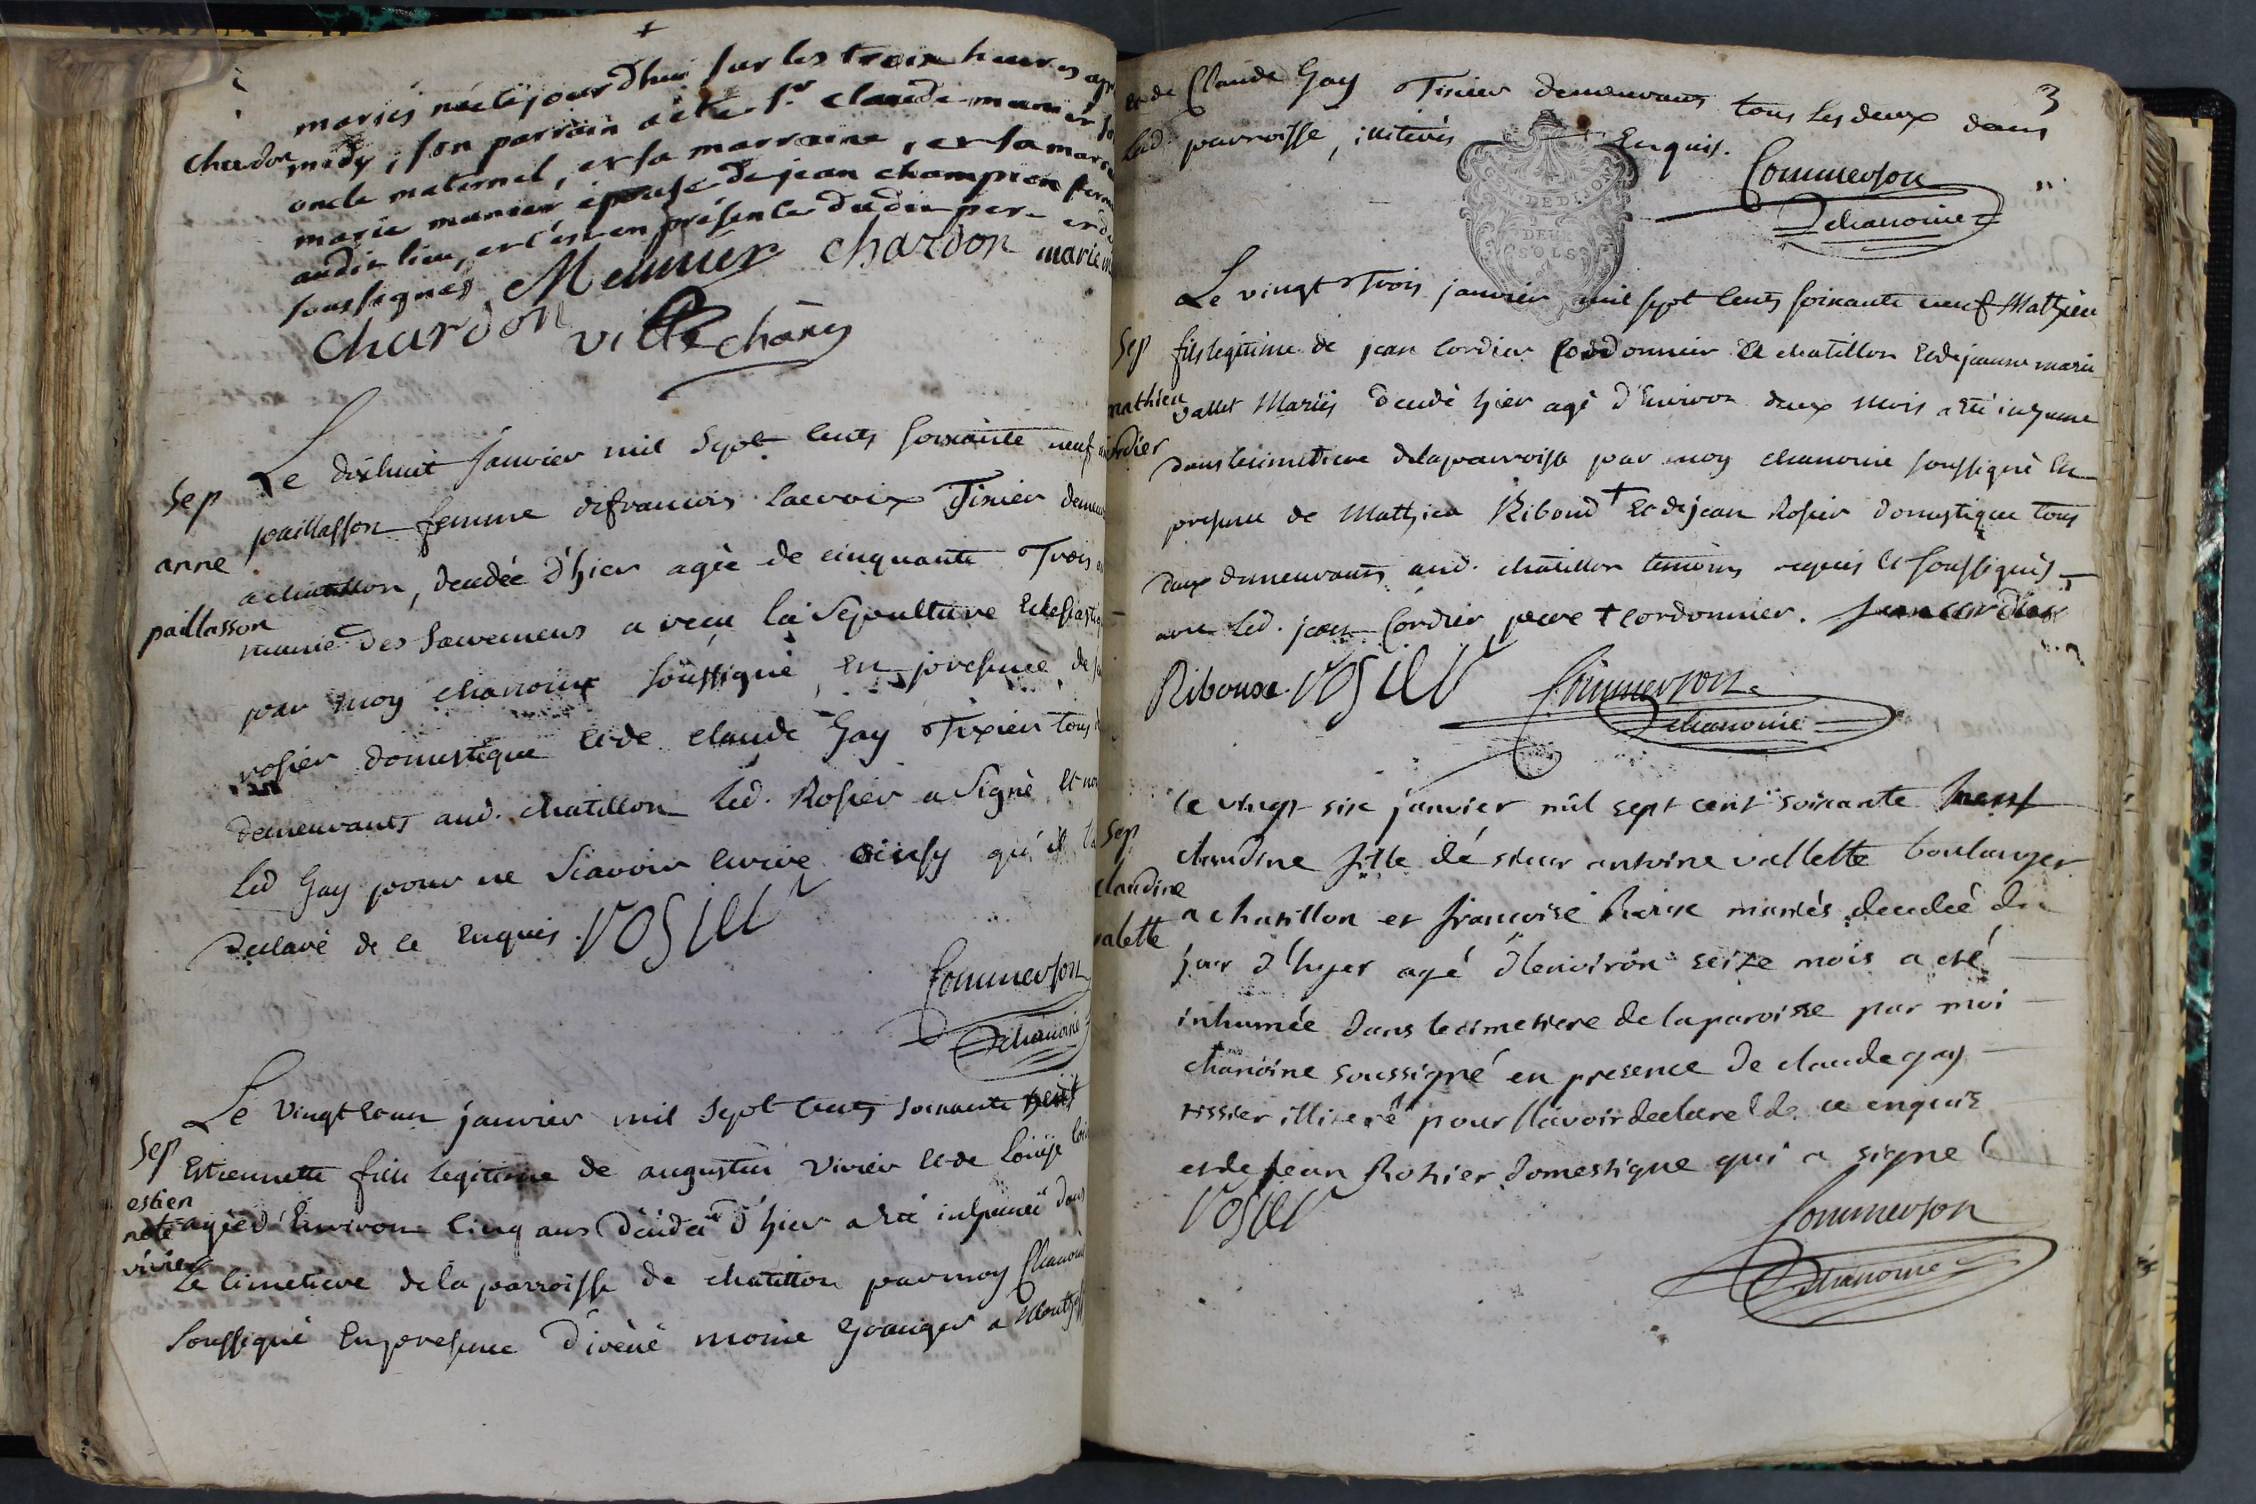 mariés né cejourdhui sur les trois heures apr
chardon
midy, son parrain a été Sr claude munier
oncle maternel, et sa marraine, et sa marr
marie munier épouse de jean champion
audit lieu, et c'est en présence dudit pere et de
soussignés Meunier chardon marie m
chardon villechâny
Sep
anne
paillasson
Le dixhuit janvier mil Sept Cents soixante neuf
paillasson femme de francois Lacroix Tixier demeu
a chatillon, décédée d'hier agée de cinquante Trois
munie des sacremens a reçu la Sepulture Eclesiasti
par moy chanoine soussigné, en presence de
rosier domestique et de claude Gay Tixier tous
demeurants aud. chatillon led. Rosier a signé et non
led Gay pour ne sçavoir écrire ainsy qu'il l'a
declaré de ce enquis. rosier
Commerson
chanoine
Sep
estien
nete
vivier
Le vingt et un janvier mil Sept Cents soixante neuf
Estiennette fille legitime de augustin vivier et de Louise
agée d'Environ Cinq ans décédée d'hier a Eté inhumée dans
Le Cimetiere de la parroisse de chatillon par moy Chanoine
soussigné En presence d'iréné moine Granger a
3
et de Claude Gay Tixier demeurants tous les deux dans
lad. parroisse, Enquis.
GEN. DE DIJON
DEUX
SOLS
Commerson
chanoine
Sep
mathieu
cordier
Le vingt Trois janvier mil sept Cents soixante neuf Mathieu
fils legitime de jean Cordier Cordonnier a chatillon et de jeanne marie
vallet Mariés décédé hier agé d'Environ deux mois a Eté inhume
dans le cimetiere de la parroisse par moy chanoine soussigné En
presence de Mathieu Riboud + et de jean Rosier domestique tous
deux demeurants aud. chatillon temoins requis et soussignés
avec led. jean Cordier pere + cordonnier. jean cordier
Riboux rosier Commerson
chanoine
Sep
claudine
valette
le vingt six janvier mil sept cent soixante neuf
claudine fille de sieur antoine vallette boulanger
a chatillon et francoise mariés decedeé du
jour d'hyer agé d'lenviron seize mois a eté
inhumée dans le cimetiere de la paroisse par moi
chanoine soussigné en presence de claude gay
tissier illiteré pour l'avoir declare de ce enquis
et de jean Rozier domestique qui a signe
rosier
Commerson
chanoine